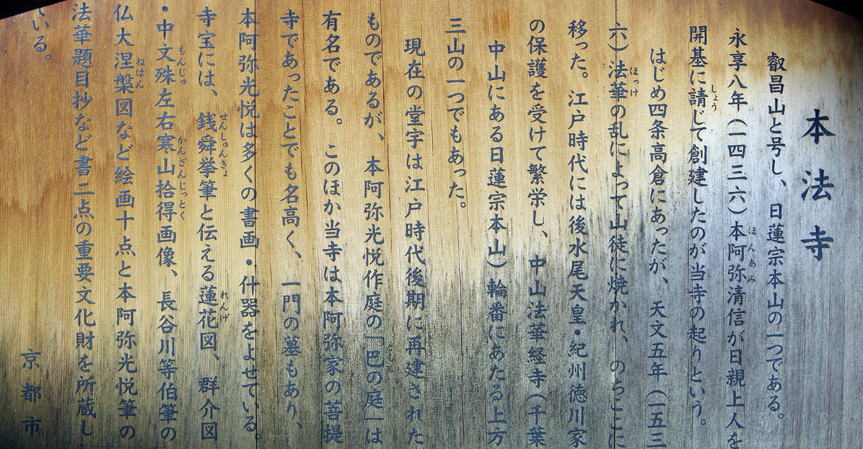 本法寺
叡昌山と号し、日蓮宗本山の一つである。
永享八年（一四三六）本阿弥清信が日親上人を
開基に請じて創建したのが当寺の起りという。
はじめ四条高倉にあったが、天文五年（一五三
六）法華の乱によって山徒に焼かれ、のちここに
移った。江戸時代には後水尾天皇・紀州徳川家
の保護を受けて繁栄し、中山法華経寺（千葉
中山にある日蓮宗本山）輪番にあたる上方
三山の一つでもあった。
現在の堂宇は江戸時代後期に再建された
ものであるが、本阿弥光悦作庭の「巴の庭」は
有名である。このほか当寺は本阿弥家の菩提
寺であったことでも名高く、一門の墓もあり、
本阿弥光悦は多くの書画・什器をよせている。
寺宝には、銭舜挙筆と伝える蓮花図、群介図
・中文殊左右寒山拾得画像、長谷川等伯筆の
仏大涅槃図など絵画十点と本阿弥光悦筆の
法華題目抄など書二点の重要文化財を所蔵し
いる。
京都市